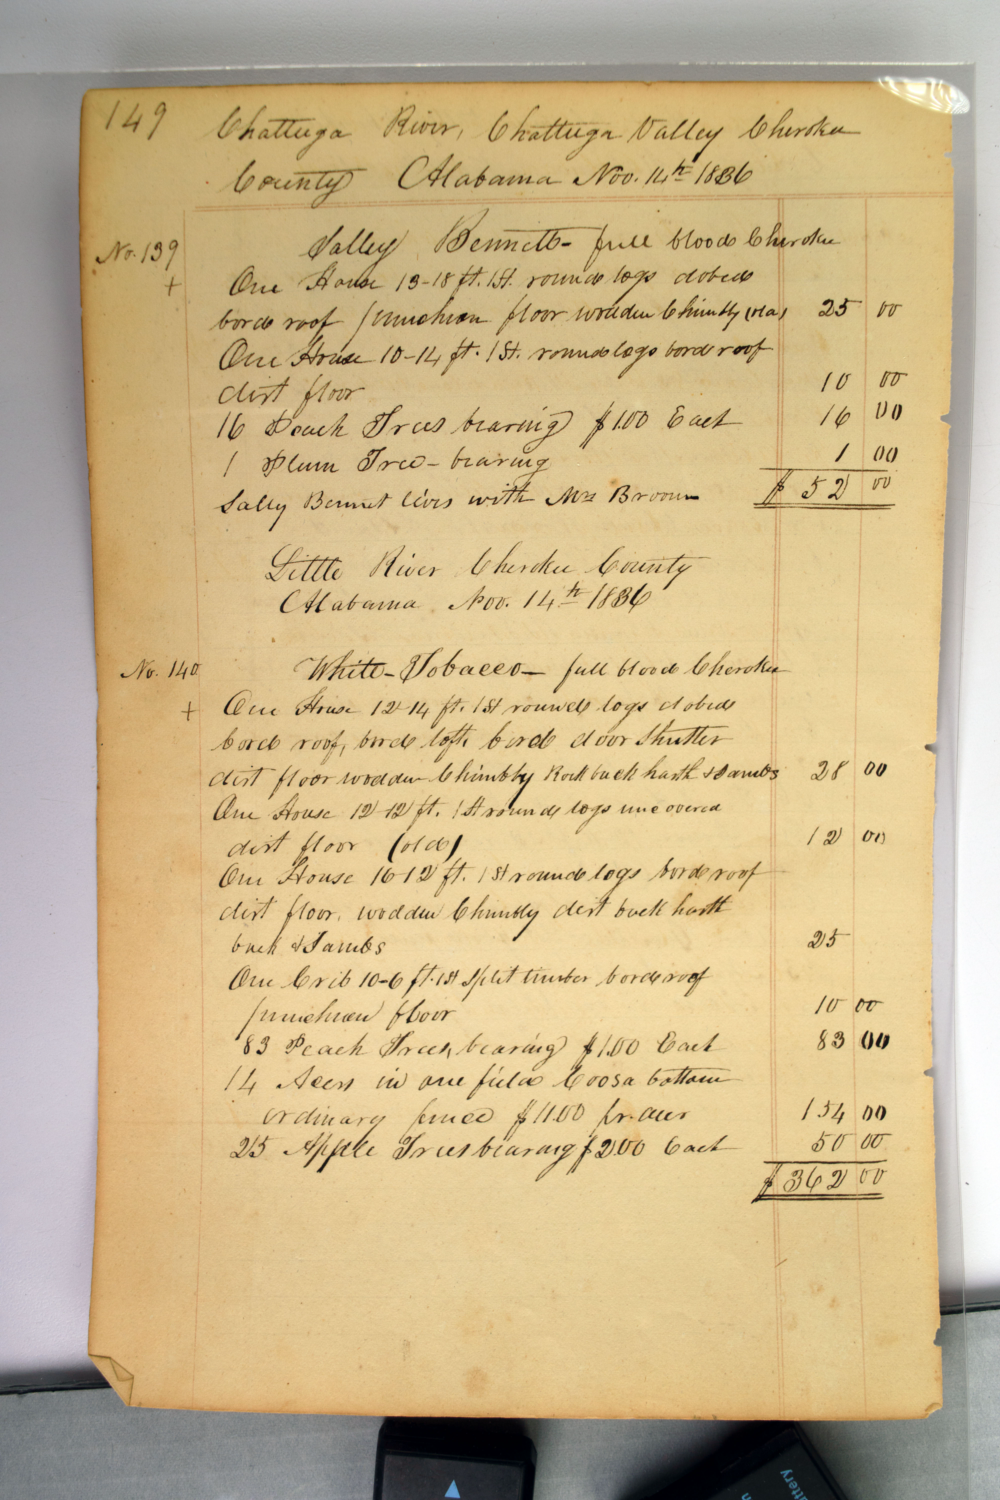 149
Chattuga River, Chattuga Valley Cherokee
County Alabama Nov. 14th 1836
No. 139 Salley Bennett - full blood Cherokee
+ One House 13-18 ft. 1St. round logs dobed
bord roof puncheon floor wooden Chimbly (old) 25 00
One House 10-14 ft. 1St. round logs bord roof
dirt floor 10 00
16 Peach Trees bearing $1.00 Each 16 00
1 Plum Tree - bearing 1 00
Sally Bennet lives with Mrs Broom $ 52 00
Little River Cherokee County
Alabama Nov. 14th 1836
No. 140 White-Tobacco - full blood Cherokee
+ One House 12-14 ft. 1St rounds logs dobed
bord roof, bord loft bord door Shutter
dirt floor wooden Chimbly Rock back harth & Jambs 28 00
One House 12-12 ft. 1St round logs uncovered
dirt floor (old) 12 00
One House 16-12 ft. 1St round logs bord roof
dirt floor, wodden Chimbly dirt back harth
back & Jambs 25
One Crib 10-6 ft. 1St Split timber bord roof
puncheon floor 10 00
83 Peach Trees, bearing $1.00 Each 83 00
14 Acers in one field Coosa bottom
ordinary fence $11.00 pr. acer 154 00
25 Apple Trees bearing $2.00 Each 50 00
$ 362 00